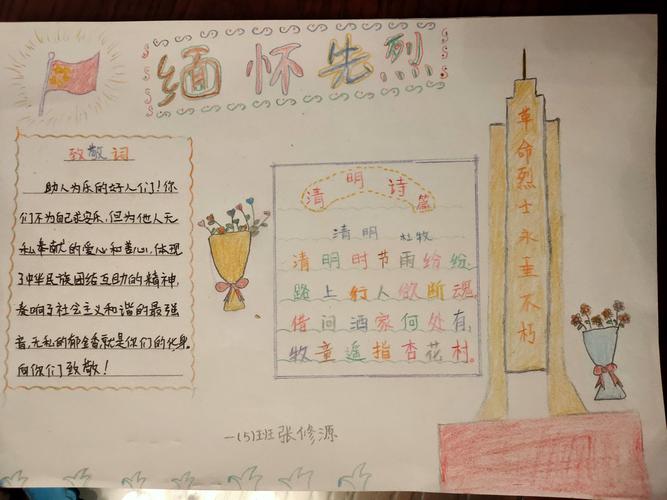 缅怀先烈
致敬词
助人为乐的好人们！你
们不为自己求安乐，但为他人无
私奉献的爱心和善心，体现
了中华民族团结互助的精神，
奏响了社会主义和谐的最强
音，无私的郁金香就是你们的化身，
向你们致敬！
清明诗篇
清明 杜牧
清明时节雨纷纷，
路上行人欲断魂。
借问酒家何处有，
牧童遥指杏花村。
革命烈士永垂不朽
一(5)班张修源